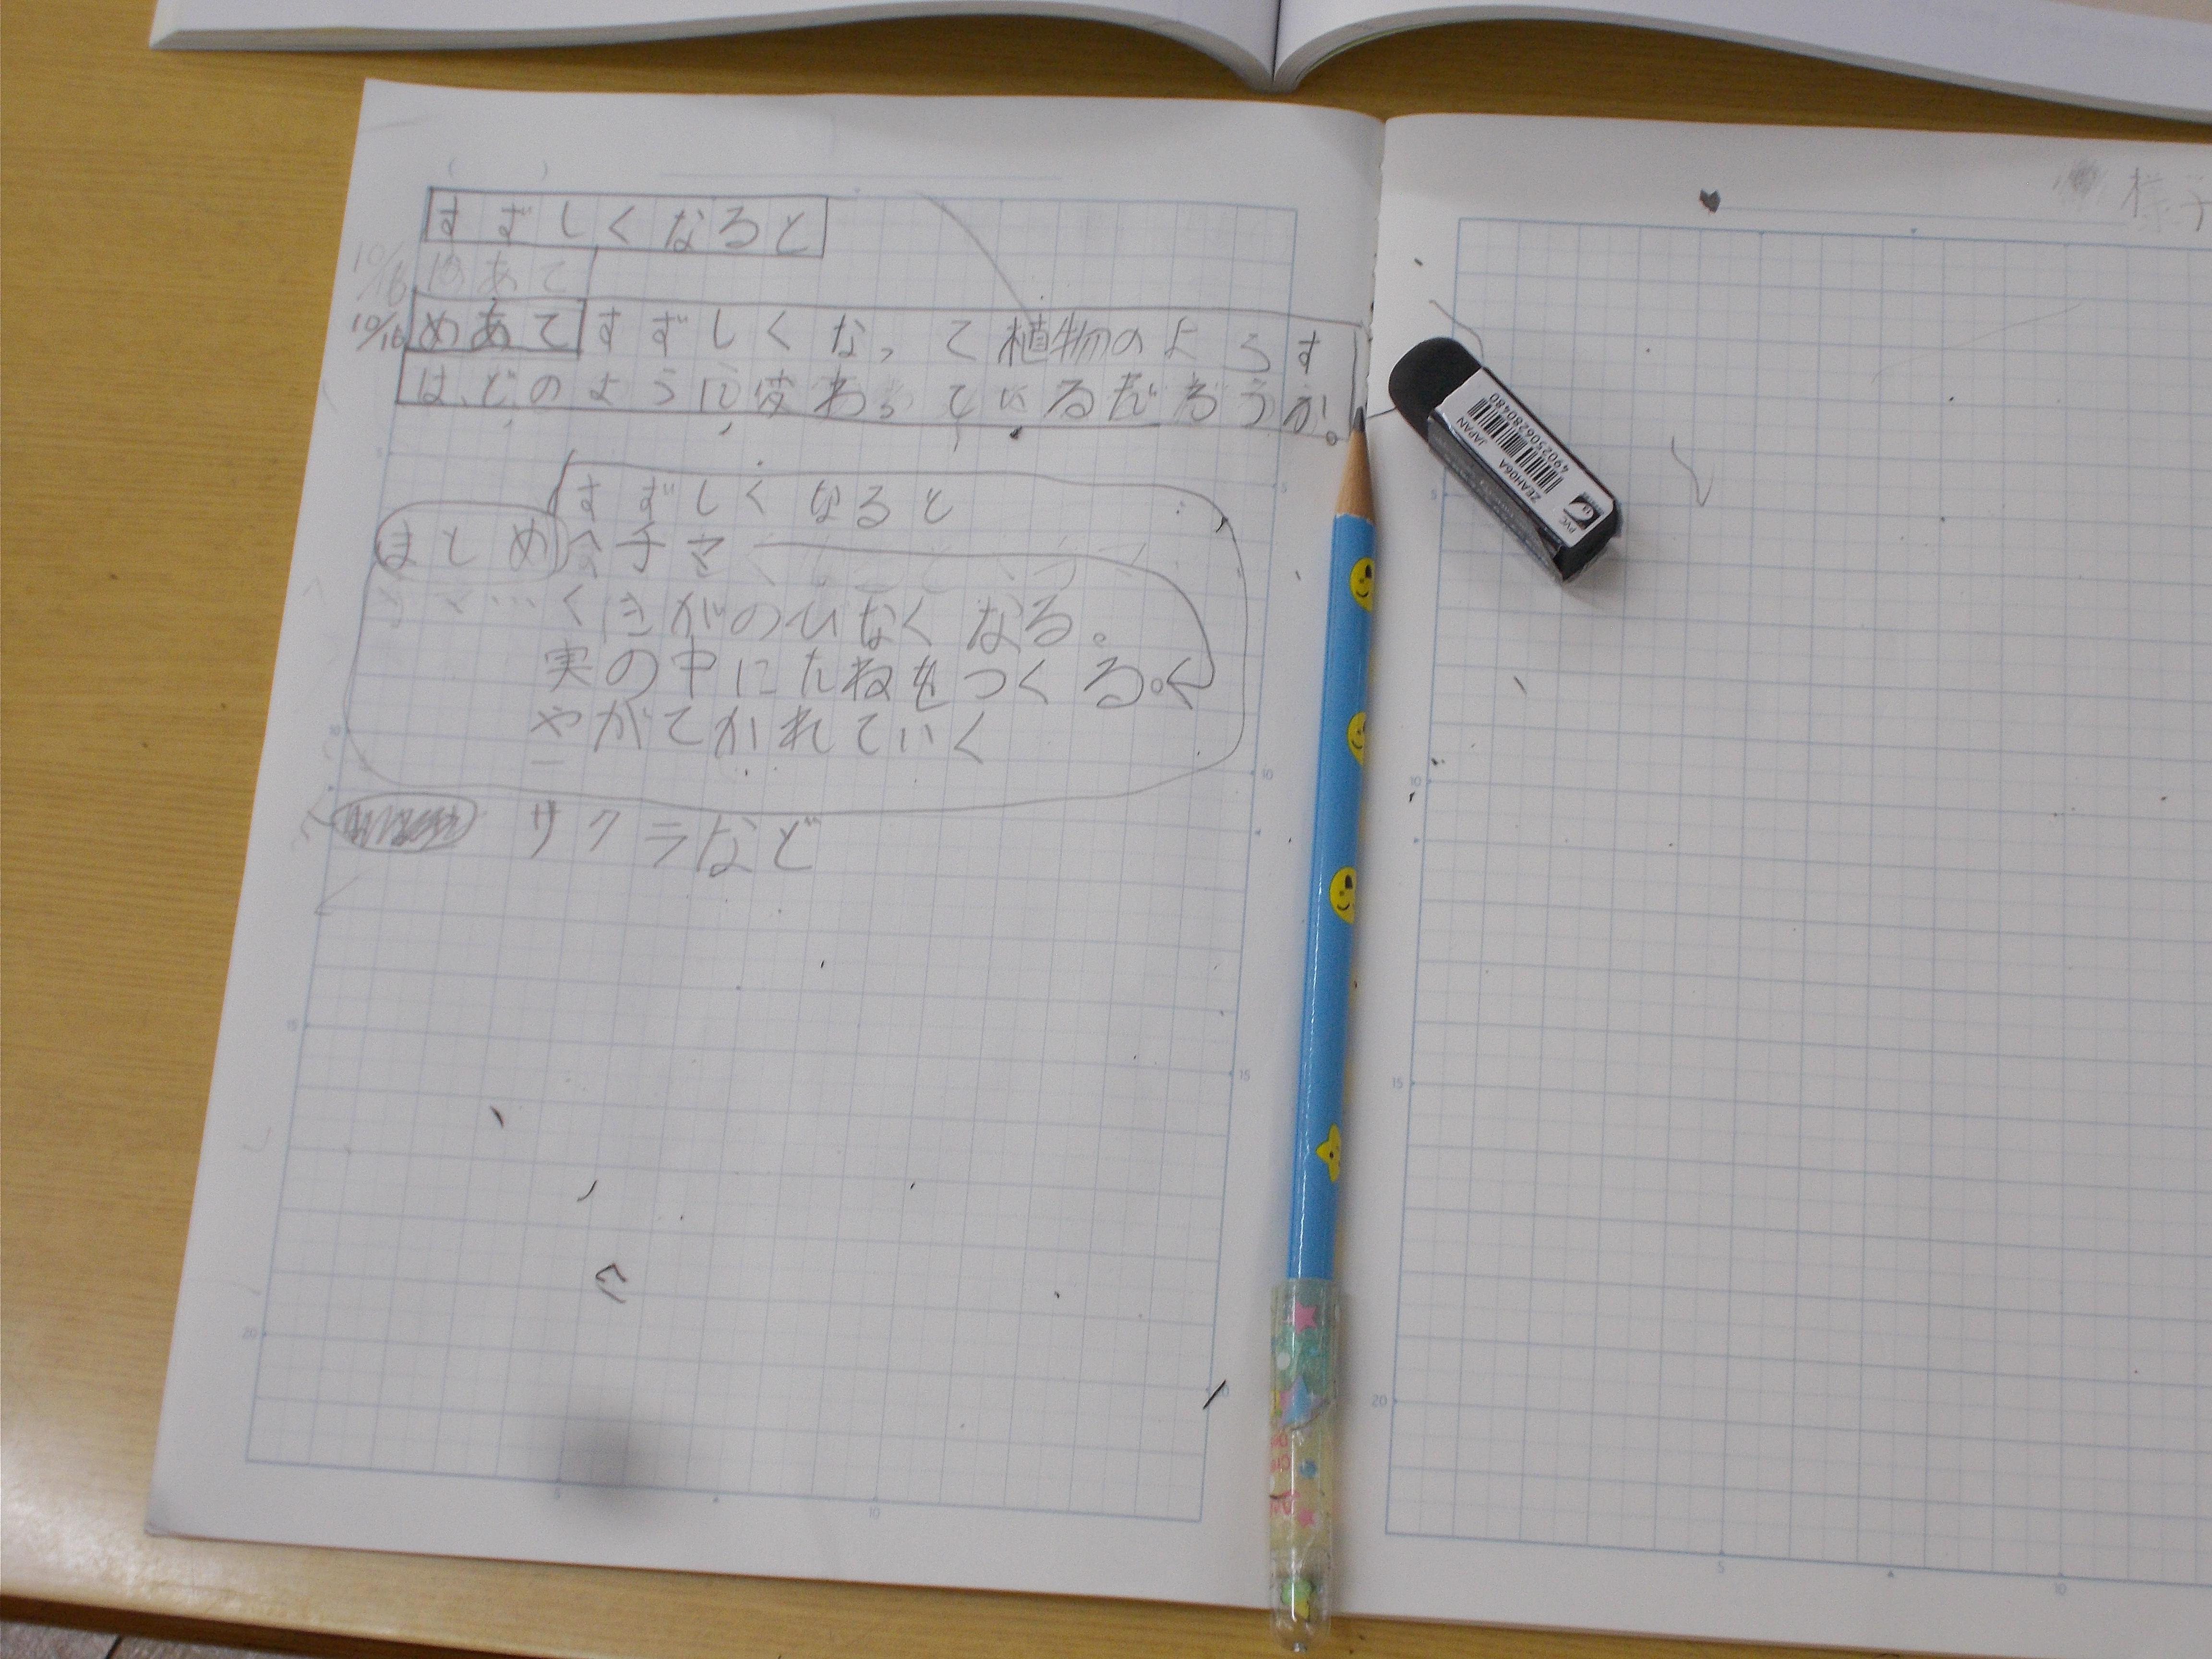 すずしくなると
10/16 めあて
10/16 めあて すずしくなって植物のようす
は、どのように変わっているだろうか。
すずしくなると
まとめ
くきがのびなくなる。
実の中にたねをつくる。
やがてかれていく
サクラなど
様子
ZEAH06A JAPAN
4902506280480
PVC
5
10
15
20
5
10
15
5
10
5
10
15
20
5
10